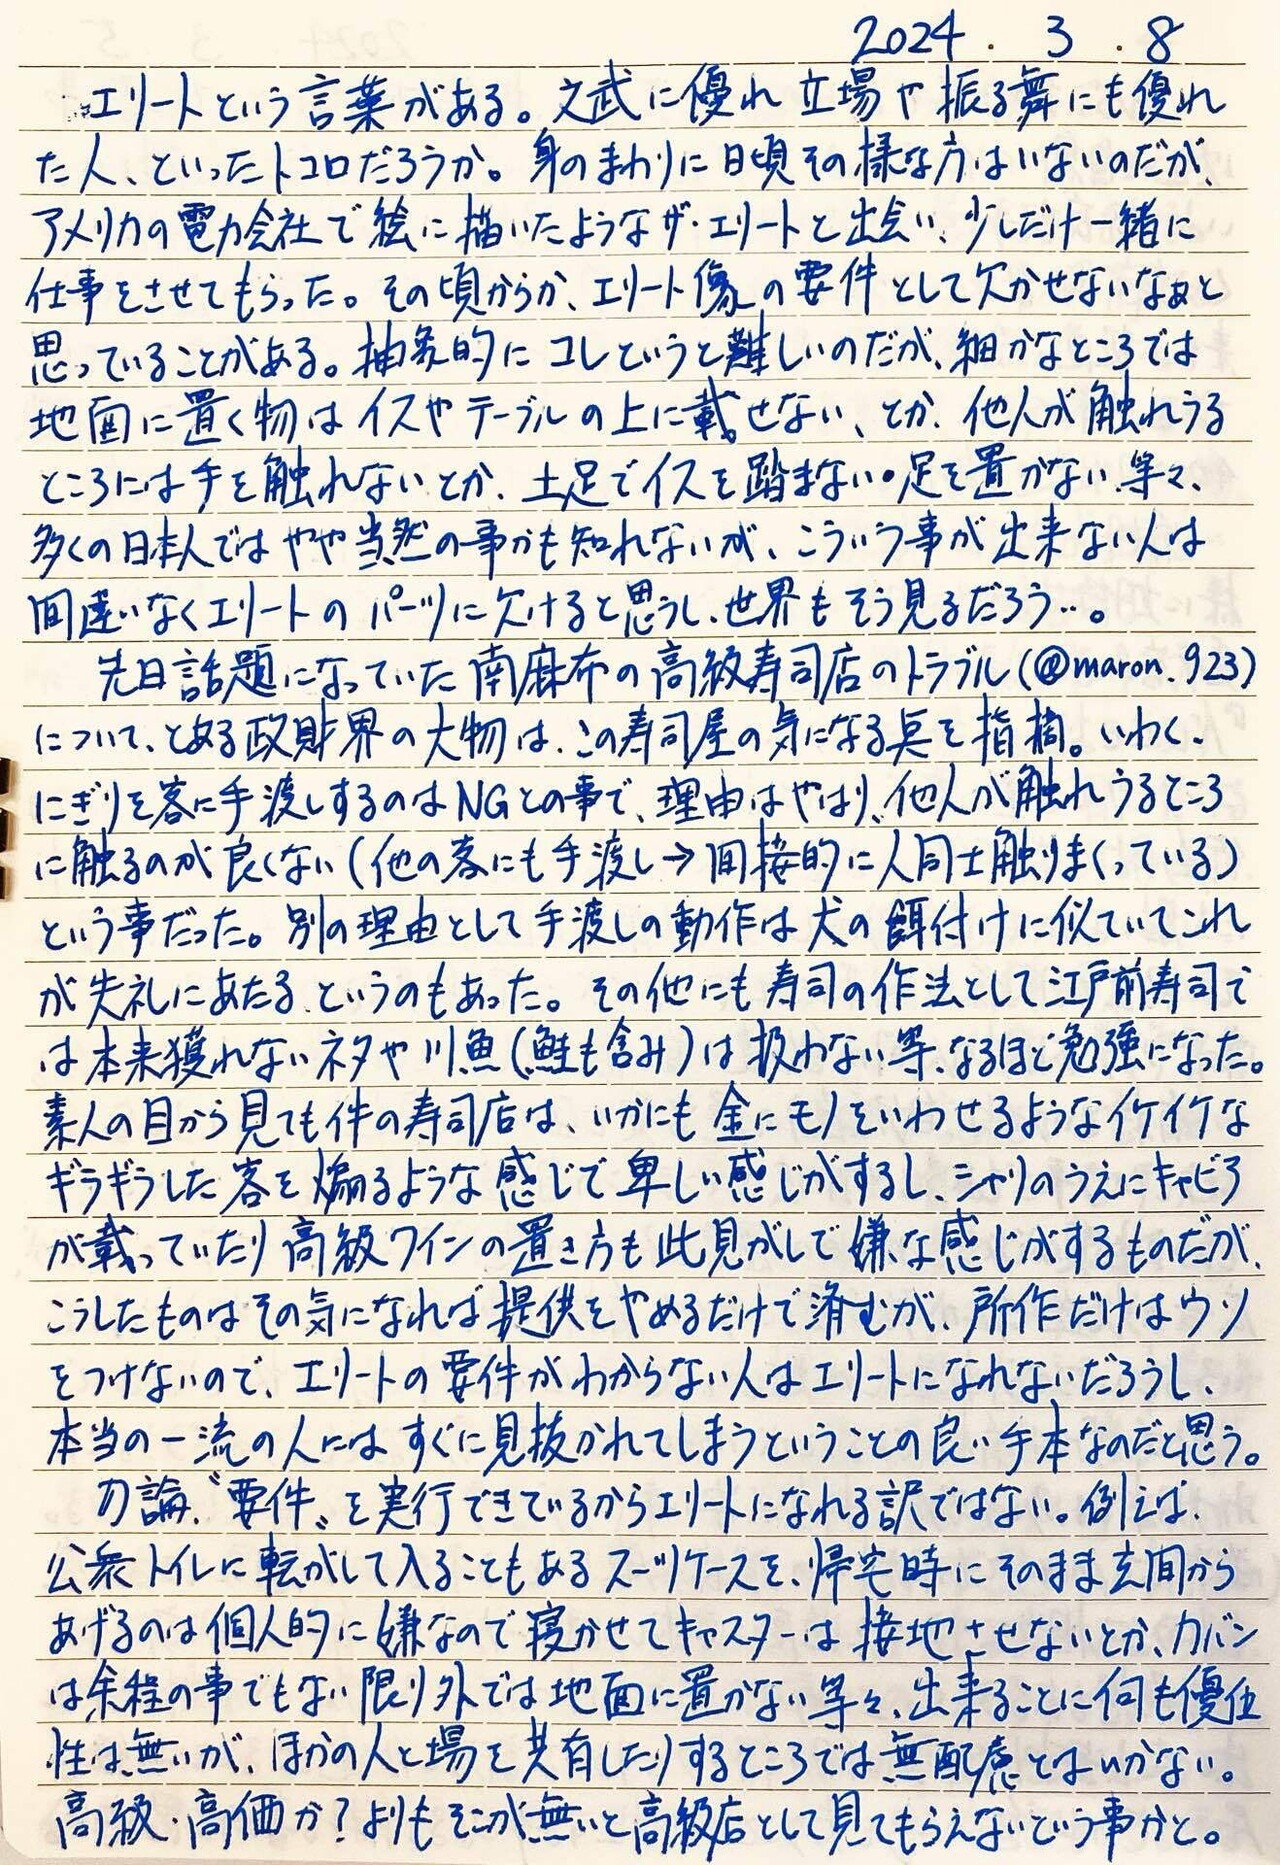 2024.3.8
エリートという言葉がある。文武に優れ立場や振る舞にも優れ
た人、といったトコロだろうか。身のまわりに日頃その様な方はいないのだが、
アメリカの電力会社で絵に描いたようなザ・エリートと出会い、少しだけ一緒に
仕事をさせてもらった。その頃からか、エリート像の要件として欠かせないなぁと
思っていることがある。抽象的にコレというと難しいのだが、細かなところでは
地面に置く物はイスやテーブルの上に載せない、とか、他人が触れうる
ところには手を触れないとか、土足でイスを踏まない・足を置かない、等々、
多くの日本人ではやや当然の事かも知れないが、こういう事が出来ない人は
間違いなくエリートのパーツに欠けると思うし、世界もそう見るだろう…。
先日話題になっていた南麻布の高級寿司店のトラブル(@maron.923)
について、とある政財界の大物は、この寿司屋の気になる点を指摘。いわく、
にぎりを客に手渡しするのはNGとの事で、理由はやはり、他人が触れうるところ
に触るのが良くない(他の客にも手渡し→間接的に人同士触りまくっている)
という事だった。別の理由として手渡しの動作は犬の餌付けに似ていてこれ
が失礼にあたる、というのもあった。その他にも寿司の作法として江戸前寿司で
は本来獲れないネタや川魚(鮭も含み)は扱わない等、なるほど勉強になった。
素人の目から見ても件の寿司店は、いかにも金にモノをいわせるようなイケイケな
ギラギラした客を煽るような感じで卑しい感じがするし、シャリのうえにキャビア
が載っていたり高級ワインの置き方も此見がしで嫌な感じがするものだが、
こうしたものはその気になれば提供をやめるだけで済むが、所作だけはウソ
をつけないので、エリートの要件がわからない人はエリートになれないだろうし、
本当の一流の人にはすぐに見抜かれてしまうということの良い手本なのだと思う。
勿論、〝要件〟を実行できているからエリートになれる訳ではない。例えば、
公衆トイレに転がして入ることもあるスーツケースを、帰宅時にそのまま玄関から
あげるのは個人的に嫌なので寝かせてキャスターは接地させないとか、カバン
は余程の事でもない限り外では地面に置かない等々、出来ることに何も優位
性は無いが、ほかの人と場を共有したりするところでは無配慮とはいかない。
高級・高価か?よりもそこが無いと高級店として見てもらえないという事かと。